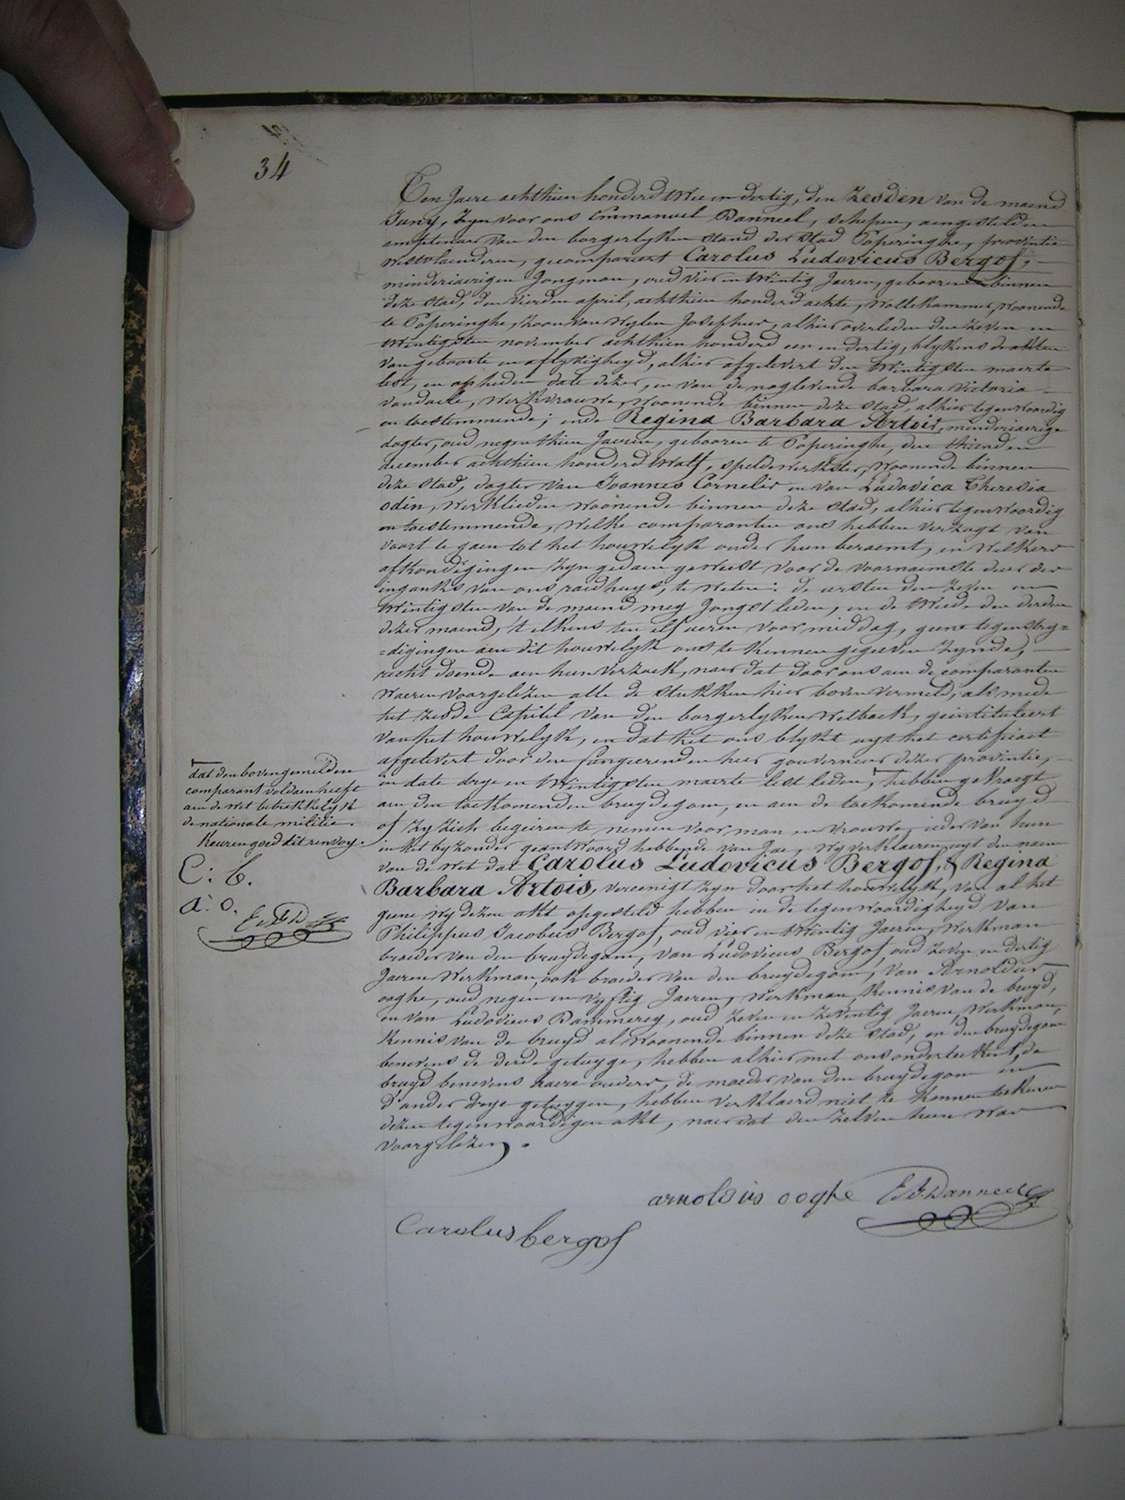 34
Ten Jaere achthien honderd twee en dertig, den Zesden van de maend
Juny, zyn voor ons Emmanuel Danneel, schepen, aengestelden
amptenaer van den borgerlyken stand der stad Poperinghe, provintie
westvlaenderen, gecompareert Carolus Ludovicus Bergof,
minderjaerigen Jongman, oud vier en twintig Jaeren, gebooren binnen
deze stad, den vierden april, achthien honderd achte, wollekammer, woonende
te Poperinghe, zoon van wylen Josephus, alhier overleden den zeven en
twintigsten november achthien honderd een en dertig, blykens de akten
van geboorte en aflyvigheyd, alhier afgelevert den twintigsten maerte
lest, en op heden date dezer, en van de nog levende barbara victoria
vandaele, werkvrouwe, woonende binnen deze stad, alhier tegenwoordig
en toestemmende; ende Regina Barbara Artois, minderjaerige
dogter, oud negenthien Jaeren, gebooren te Poperinghe, den
december achthien honderd twalf, speldewerkster, woonende binnen
deze stad, dogter van Joannes Cornelis en van Ludovica Theresia
odin, werklieden woonende binnen deze stad, alhier tegenwoordig
en toestemmende, welke comparanten ons hebben verzogt van
voort te gaen tot het houwelyk onder hun beraemt, en welkers
afkondigingen zyn gedaen geweest voor de voornaemste deur der
ingank van ons raedhuys, te weten: de eersten den zeven en
twintigsten van de maend mey Jongst leden, en de twede den derden
dezer maend, 't elkens ten elf ueren voor middag, geene tegenstry=
=digingen aen dit houwelyk ons te kennen gegeven zynde,
recht doende aen hun verzoek, naer dat door ons aen de comparanten
waeren voorgelezen alle de stukken hier boven vermeld, als mede
het zesde Capitel van den borgerlyken wetboek, geintituleert
van het houwelyk, en dat het ons blykt uyt het certificaet
afgelevert door den fungerenden heer gouverneur dezer provintie,
in date drye en twintigsten maerte lest leden, hebben gevraegt
aen den toekomenden bruydegom, en aen de toekomende bruyd
of zy zich begeiren te nemen voor man en vrouwe, ieder van hun
in het byzonder geantwoord hebbende van Jae, wy verklaeren uyt den naem
van de wet dat Carolus Ludovicus Bergof, & Regina
Barbara Artois, vereenigt zyn door het houwelyk, van al het
gene wy dezen akt opgesteld hebben in de tegenwoordigheyd van
Philippus Jacobus Bergof, oud vier en twintig Jaeren, werkman
broeder van den bruydegom, van Ludovicus Bergof oud zeven en dertig
Jaeren werkman, ook broeder van den bruydegom, van Arnoldus
ooghe, oud negen en vyftig Jaeren, werkman, kennis van de bruyd,
en van Ludovicus Dammerey, oud zeven en Jaeren, werkman,
kennis van de bruyd al woonende binnen deze stad, en den bruydegom
benevens de derde getuyge, hebben alhier met ons onderteekent, de
bruyd benevens haere ouders, de moeder van den bruydegom en
d'ander drye getuygen, hebben verklaerd niet te konnen teekenen
dezen tegenwoordigen akt, naer dat den zelven hun was
voorgelezen.
dat den bovengemelden
comparant voldaen heeft
aen de wet betrekkelyk
de nationale militie.
keuren goed dit renvoy.
C: b.
a: o.
E. F. D
arnoldus ooghe E. F. Danneel
Carolus bergof